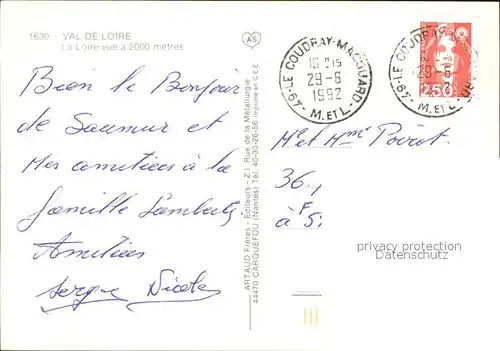 1630. - VAL DE LOIRE
La Loire vue à 2000 mètres
AS
Bien le Bonjour
de Saumur et
Mes amitiées à la
famille
Amitiées
Serge Nicole
ARTAUD Frères - Éditeurs - Z.I. Rue de la Métallurgie
44470 CARQUEFOU (Nantes) Tél. 40-30-26-56 Imprimé en C.E.E.
LE COUDRAY-MACOUARD
29-6
1992
-49- M.ET L.
LE COUDRAY
29-6
-49- M.ET L.
2,50
Mr et Mme
36,
à F
S
privacy protection
oldthing.de